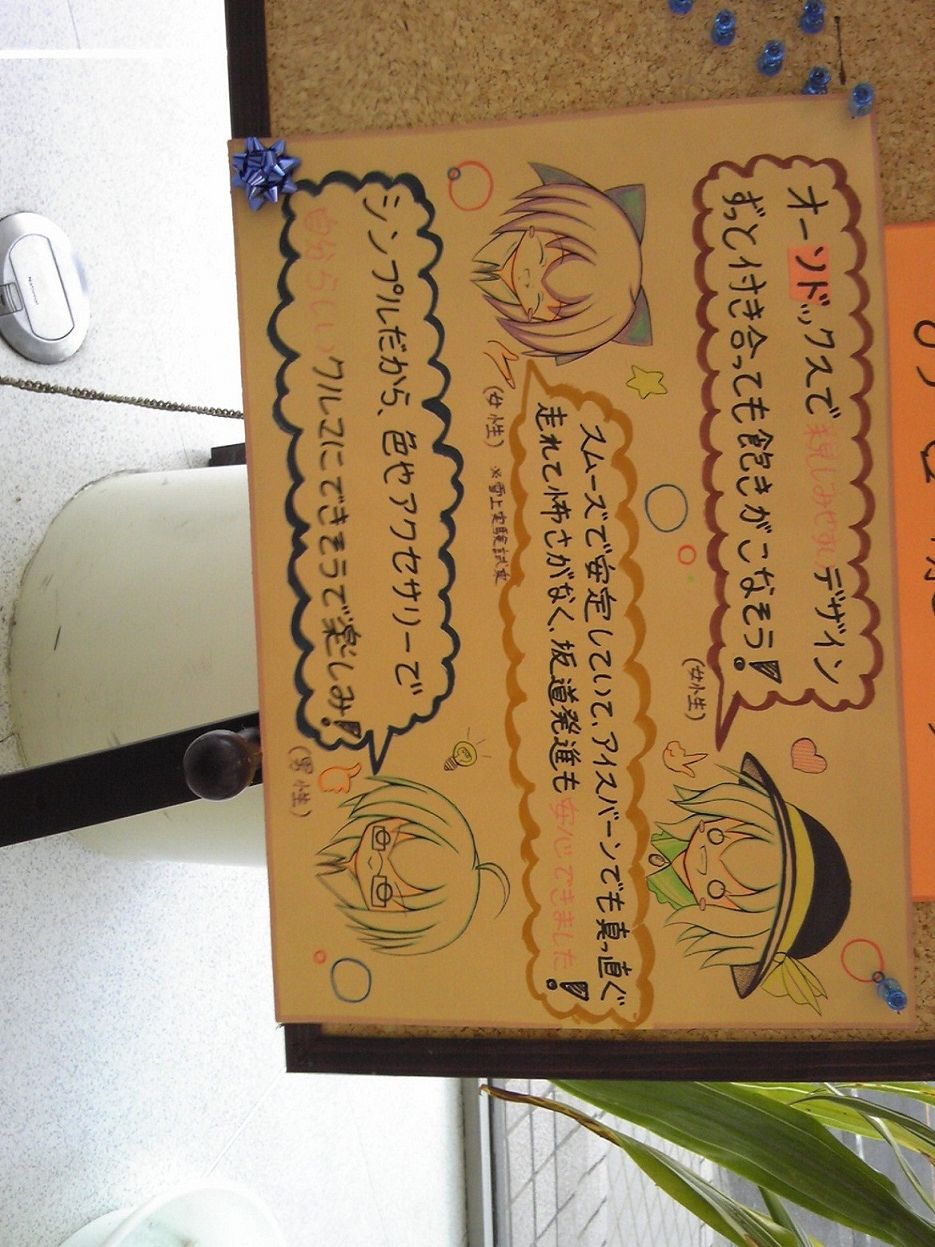 オーソドックスで親しみやすいデザイン
ずっと付き合っても飽きがこなそう!
(女性)
スムーズで安定していて、アイスバーンでも真っ直ぐ
走れて怖さがなく、坂道発進も安心できました!
(女性)
※雪上実験試乗
シンプルだから、色やアクセサリーで
自分らしいクルマにできそうで楽しみ!
(男性)